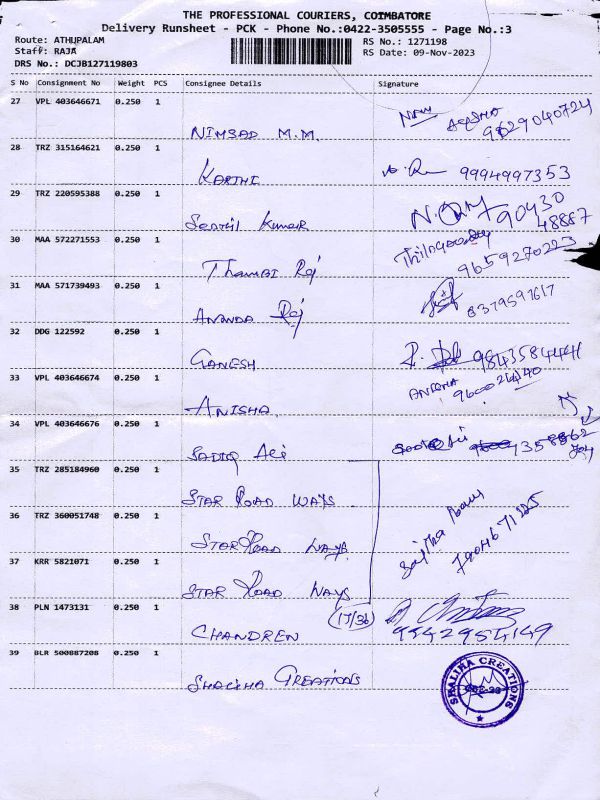 THE PROFESSIONAL COURIERS, COIMBATORE
Delivery Runsheet - PCK - Phone No.:0422-3505555 - Page No.:3
Route: ATHUPALAM
RS No.: 1271198
Staff: RAJA
RS Date: 09-Nov-2023
DRS No.: DCJB127119803
S No Consignment No Weight PCS Consignee Details Signature
27 VPL 403646671 0.250 1
NIMSAD M.M. 9629040724
28 TRZ 315164621 0.250 1
KARTHI 9994997353
29 TRZ 220595388 0.250 1
Senthil Kumar 90430
48887
30 MAA 572271553 0.250 1
Thambi Raj 9659270223
31 MAA 571739493 0.250 1
ANANDA Raj 8379591617
32 DDG 122592 0.250 1
GANESH
33 VPL 403646674 0.250 1
ANISHA
34 VPL 403646676 0.250 1
SADIQ Ali
35 TRZ 285184960 0.250 1
STAR ROAD WAYS
36 TRZ 360051748 0.250 1
STAR ROAD WAYS
37 KRR 5821071 0.250 1
STAR ROAD WAYS
38 PLN 1473131 0.250 1
CHANDREN 9942954149
39 BLR 500887208 0.250 1
SHALIHA CREATIONS
SHALIHA CREATIONS